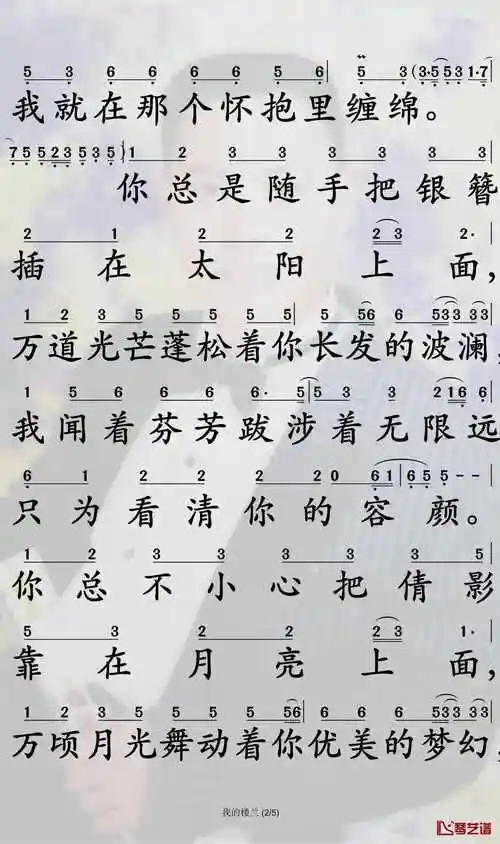 5 3 6 6 6 6 5 6 | 5 3 (3·5 5 3 1·7
我就在那个怀抱里缠绵。
7 5 5 2 3 5 3 5) | 1 2 3 3 3 3 3 3
你总是随手把银簪
2 1 2 2 2 3 2·
插在太阳上面,
1 2 3 5 5 5 5 5 | 5 5 6 6 6 5 3 3 3 3
万道光芒蓬松着你长发的波澜,
1 5 6 6 6 6· 5 | 5 3 3 2 1 6 6
我闻着芬芳跋涉着无限远
6 1 2 2 2 2 0 6 1 | 6 5 5 - -
只为看清你的容颜。
1 2 3 3 3 3 3 3
你总不小心把倩影
5 3 2 2 2 3 1·
靠在月亮上面,
1 2 3 5 5 5 5 5 6 | 5 6 6 6 5 3 3 3 3
万顷月光舞动着你优美的梦幻,
我的楼兰 (2/5)
琴艺谱